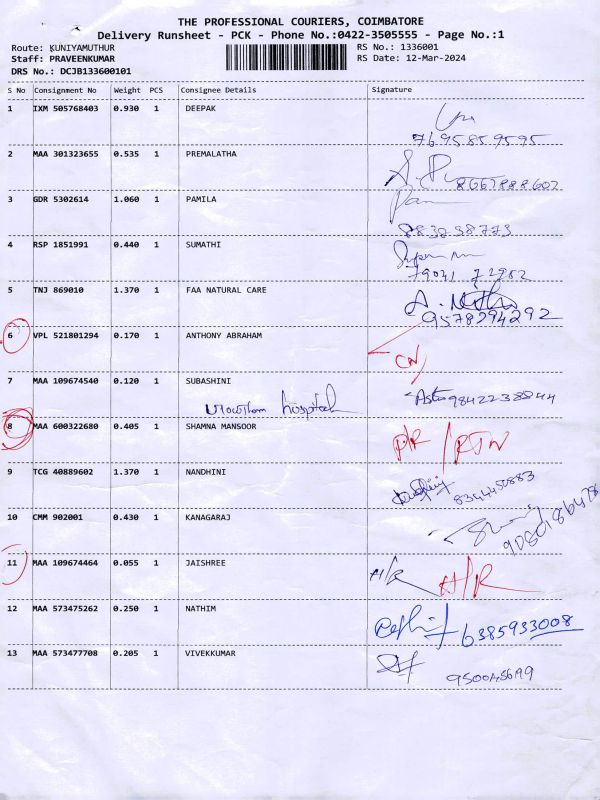 THE PROFESSIONAL COURIERS, COIMBATORE
Delivery Runsheet - PCK - Phone No.:0422-3505555 - Page No.:1
Route: KUNIYAMUTHUR RS No.: 1336001
Staff: PRAVEENKUMAR RS Date: 12-Mar-2024
DRS No.: DCJB133600101
S No Consignment No Weight PCS Consignee Details Signature
1 IXM 505768403 0.930 1 DEEPAK
7695859595
2 MAA 301323655 0.535 1 PREMALATHA
8667888602
3 GDR 5302614 1.060 1 PAMILA Pam
8838238773
4 RSP 1851991 0.440 1 SUMATHI
79041 72982
5 TNJ 869010 1.370 1 FAA NATURAL CARE
9578294292
6 VPL 521801294 0.170 1 ANTHONY ABRAHAM
CN
7 MAA 109674540 0.120 1 SUBASHINI
hospital 9842238944
8 MAA 600322680 0.405 1 SHAMNA MANSOOR P/R / RTN
9 TCG 40889602 1.370 1 NANDHINI
8344450883
10 CMM 902001 0.430 1 KANAGARAJ
9080186478
11 MAA 109674464 0.055 1 JAISHREE H/R H/R
12 MAA 573475262 0.250 1 NATHIM
6385933008
13 MAA 573477708 0.205 1 VIVEKKUMAR